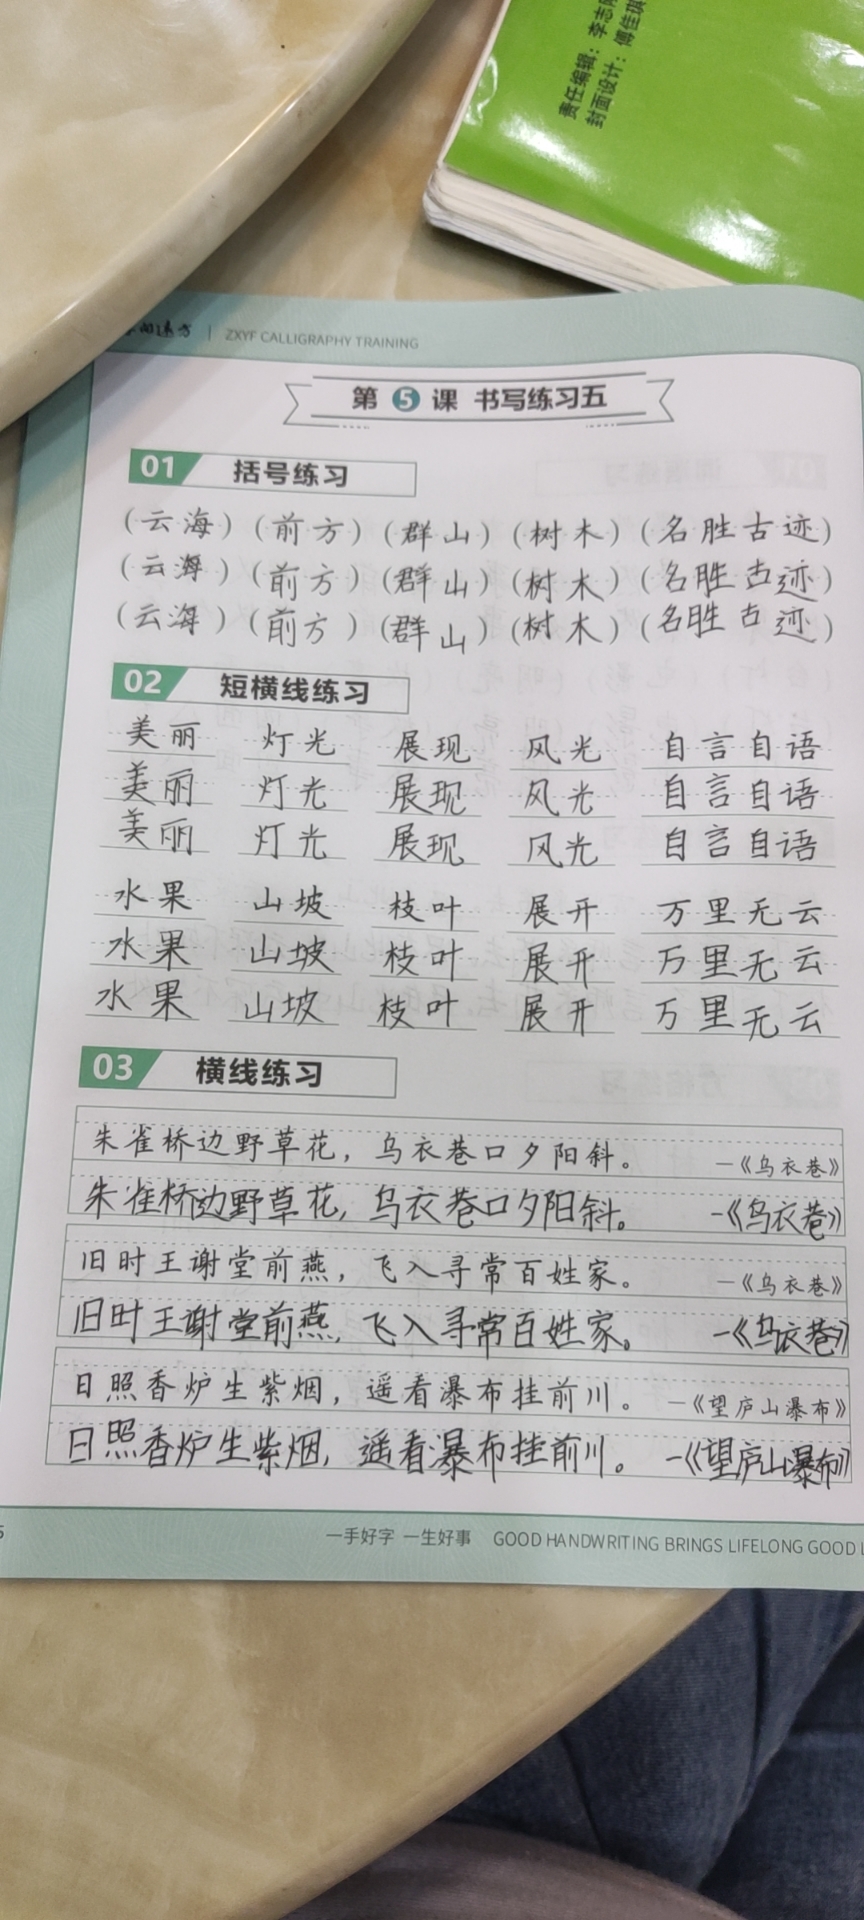 责任编辑：李志
封面设计：傅佳琪
ZXYF CALLIGRAPHY TRAINING
第5课 书写练习五
01 括号练习
(云海) (前方) (群山) (树木) (名胜古迹)
(云海) (前方) (群山) (树木) (名胜古迹)
(云海) (前方) (群山) (树木) (名胜古迹)
02 短横线练习
美丽 灯光 展现 风光 自言自语
美丽 灯光 展现 风光 自言自语
美丽 灯光 展现 风光 自言自语
水果 山坡 枝叶 展开 万里无云
水果 山坡 枝叶 展开 万里无云
水果 山坡 枝叶 展开 万里无云
03 横线练习
朱雀桥边野草花，乌衣巷口夕阳斜。 —《乌衣巷》
朱雀桥边野草花，乌衣巷口夕阳斜。 —《乌衣巷》
旧时王谢堂前燕，飞入寻常百姓家。 —《乌衣巷》
旧时王谢堂前燕，飞入寻常百姓家。 —《乌衣巷》
日照香炉生紫烟，遥看瀑布挂前川。 —《望庐山瀑布》
日照香炉生紫烟，遥看瀑布挂前川。 —《望庐山瀑布》
5
一手好字 一生好事 GOOD HANDWRITING BRINGS LIFELONG GOOD